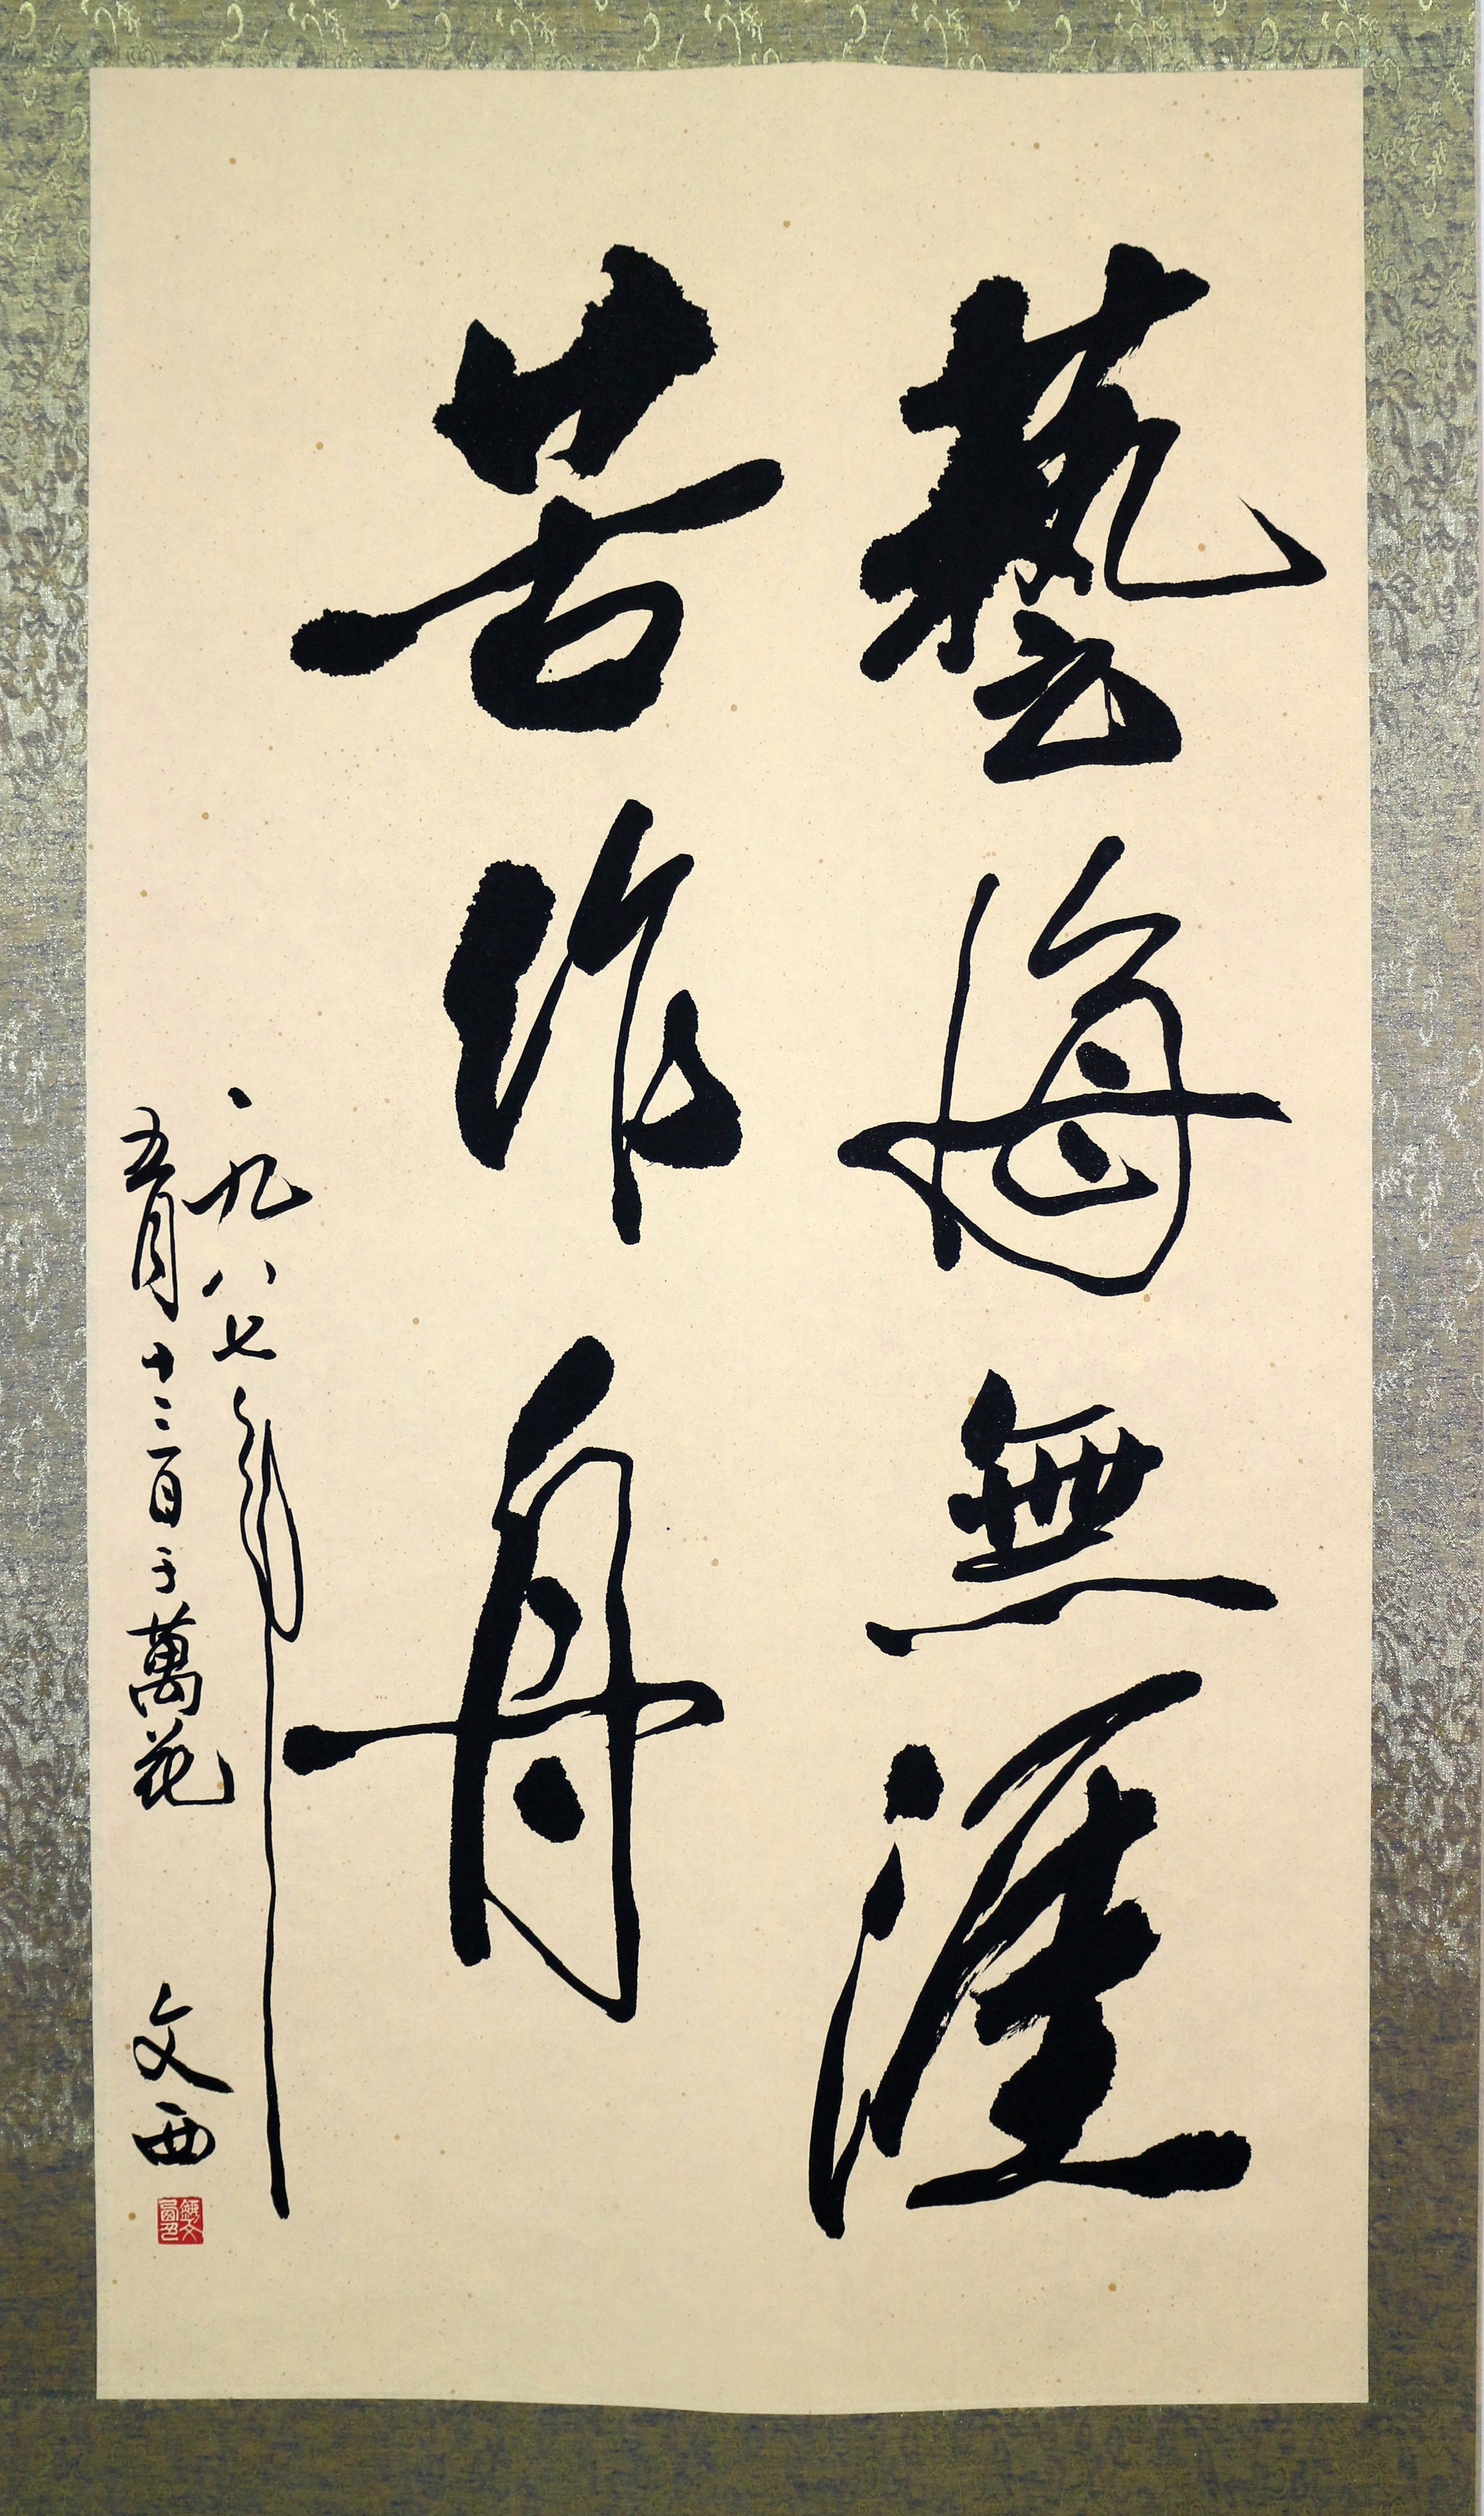 藝海無涯
苦作舟
一九八七年
五月十二日于萬花
文西